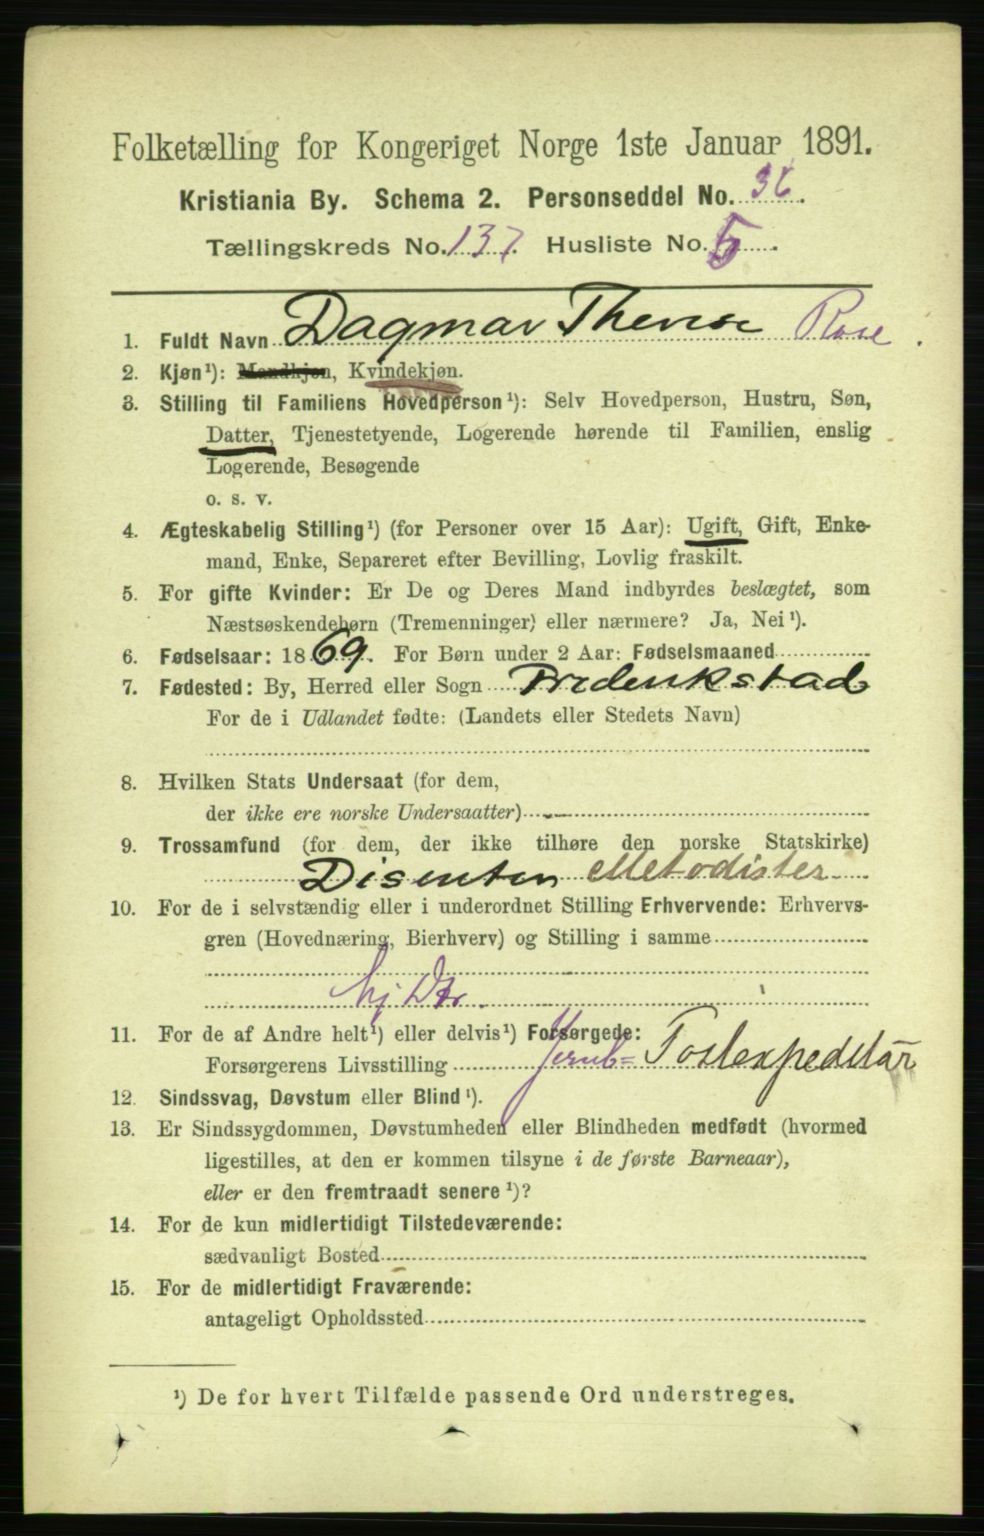 Folketælling for Kongeriget Norge 1ste Januar 1891.
Kristiania By. Schema 2. Personseddel No. 36.
Tællingskreds No. 137. Husliste No. 5.
1. Fuldt Navn Dagmar Therese Rose.
2. Kjøn¹): Mandkjøn, Kvindekjøn.
3. Stilling til Familiens Hovedperson¹): Selv Hovedperson, Hustru, Søn,
Datter, Tjenestetyende, Logerende hørende til Familien, enslig
Logerende, Besøgende
o. s. v.
4. Ægteskabelig Stilling¹) (for Personer over 15 Aar): Ugift, Gift, Enke-
mand, Enke, Separeret efter Bevilling, Lovlig fraskilt.
5. For gifte Kvinder: Er De og Deres Mand indbyrdes beslægtet, som
Næstsøskendebørn (Tremenninger) eller nærmere? Ja, Nei¹).
6. Fødselsaar: 1869. For Børn under 2 Aar: Fødselsmaaned
7. Fødested: By, Herred eller Sogn Frederikstad
For de i Udlandet fødte: (Landets eller Stedets Navn)
8. Hvilken Stats Undersaat (for dem,
der ikke ere norske Undersaatter)
9. Trossamfund (for dem, der ikke tilhøre den norske Statskirke)
Disenten Metodister
10. For de i selvstændig eller i underordnet Stilling Erhvervende: Erhvervs-
gren (Hovednæring, Bierhverv) og Stilling i samme
hj Dtr.
11. For de af Andre helt¹) eller delvis¹) Forsørgede:
Forsørgerens Livsstilling Jernb= Postexpeditør
12. Sindssvag, Døvstum eller Blind¹).
13. Er Sindssygdommen, Døvstumheden eller Blindheden medfødt (hvormed
ligestilles, at den er kommen tilsyne i de første Barneaar),
eller er den fremtraadt senere¹)?
14. For de kun midlertidigt Tilstedeværende:
sædvanligt Bosted
15. For de midlertidigt Fraværende:
antageligt Opholdssted
¹) De for hvert Tilfælde passende Ord understreges.